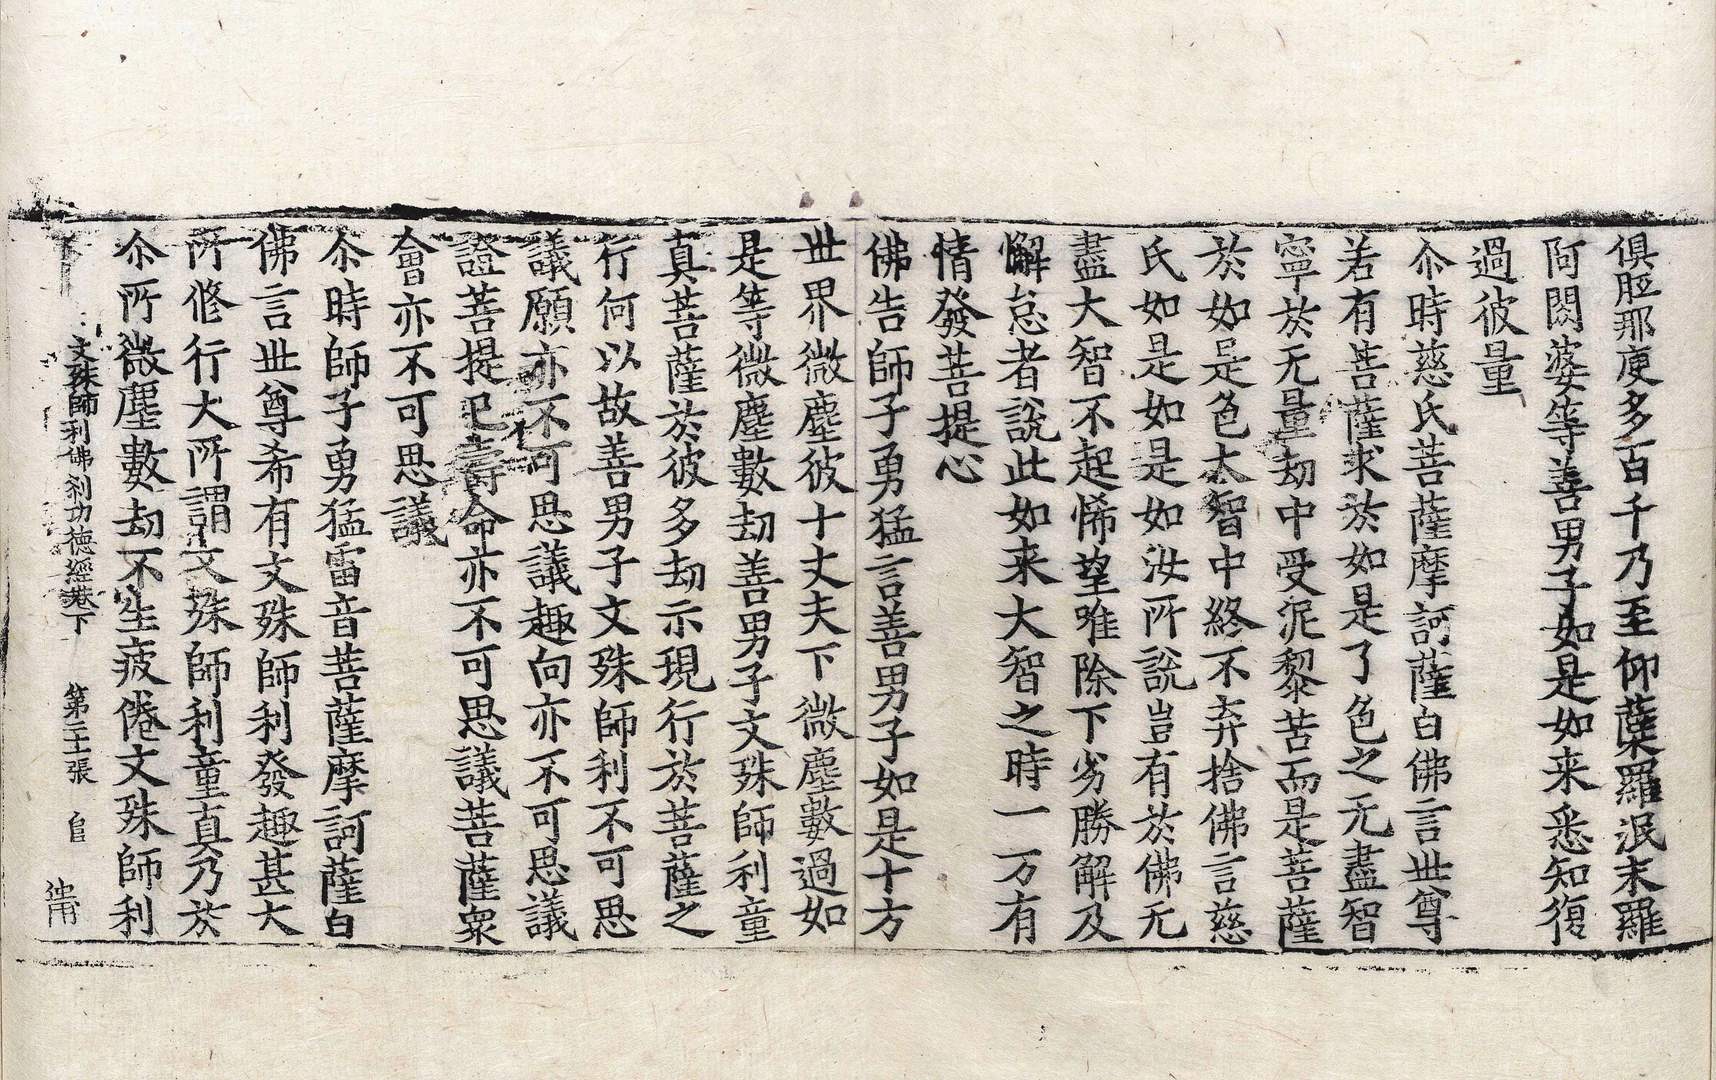 俱胝那庾多百千乃至仰蘗羅泯末羅
阿閦婆等善男子如是如来悉知復
過彼量
尒時慈氏菩薩摩訶薩白佛言世尊
若有菩薩求於如是了色之无盡智
寧於无量劫中受泥黎苦而是菩薩
於如是色大智中終不弃捨佛言慈
氏如是如是如汝所說豈有於佛无
盡大智不起悕望唯除下劣勝解及
懈怠者說此如来大智之時一万有
情發菩提心
佛告師子勇猛言善男子如是十方
世界微塵彼十丈夫下微塵數過如
是等微塵數劫善男子文殊師利童
真菩薩於彼多劫示現行於菩薩之
行何以故善男子文殊師利不可思
議願亦不可思議趣向亦不可思議
證菩提已壽命亦不可思議菩薩衆
會亦不可思議
尒時師子勇猛雷音菩薩摩訶薩白
佛言世尊希有文殊師利發趣甚大
所修行大所謂文殊師利童真乃於
尒所微塵數劫不生疲倦文殊師利
文殊師利佛刹功德經卷下 第二十張